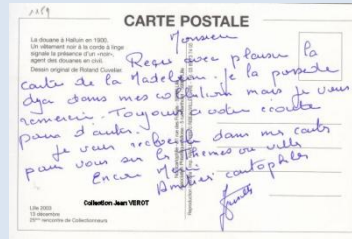 1189
CARTE POSTALE
La douane à Halluin en 1900.
Un vêtement noir à la corde à linge
signale la présence d'un «noir»,
agent des douanes en civil.
Dessin original de Roland Cuvelier.
Monsieur
Reçu avec plaisir la
carte de la Madeleine. Je la possède
déjà dans mes collections mais je vous
remercie. Toujours à votre écoute
pour d'autres.
Je vais rechercher dans mes cartes
pour vous sur les thèmes ou ville
Encore Merci
Amitiés cartophiles
Collection Jean VEROT
Lille 2003
13 décembre
25ème rencontre de Collectionneurs